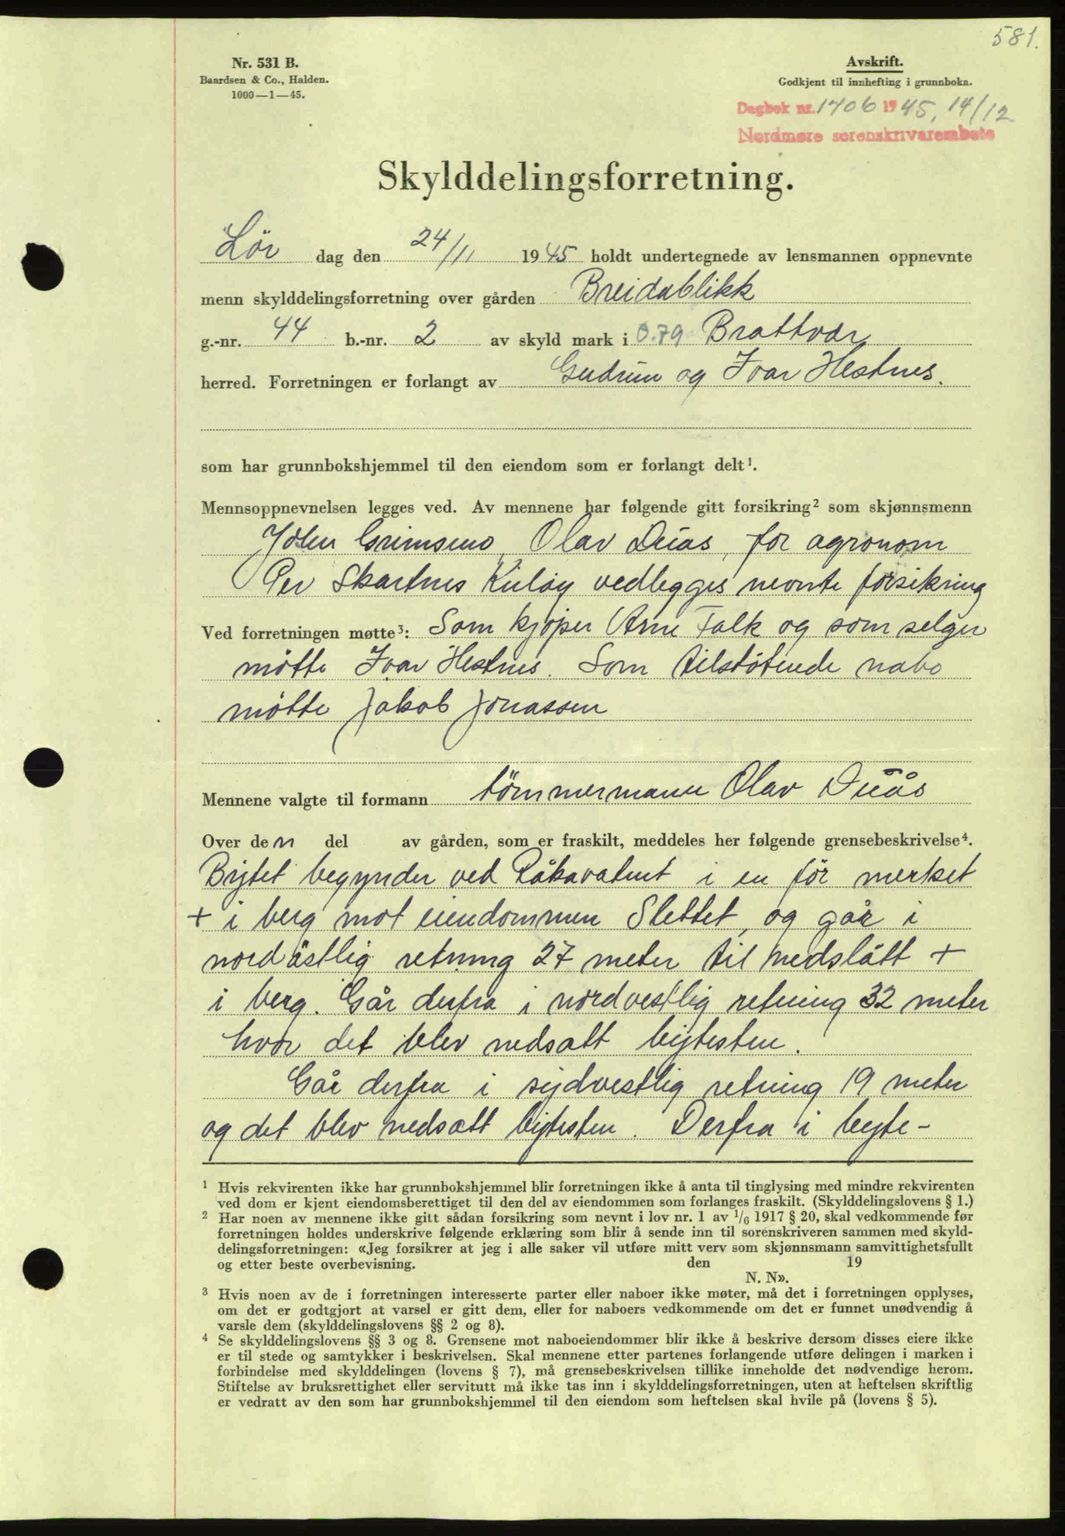 581.
Nr. 531 B.
Baardsen & Co., Halden.
1000—1—45.
Avskrift.
Godkjent til innhefting i grunnboka.
Dagbok nr. 1706 1945, 14/12
Nordmøre sorenskrivarembete
Skylddelingsforretning.
Lør dag den 24/11 1945 holdt undertegnede av lensmannen oppnevnte
menn skylddelingsforretning over gården Breidablikk
g.-nr. 44 b.-nr. 2 av skyld mark i 0.79 Brattvær
herred. Forretningen er forlangt av Gudrun og Ivar Hestnes.
som har grunnbokshjemmel til den eiendom som er forlangt delt¹.
Mennsoppnevnelsen legges ved. Av mennene har følgende gitt forsikring² som skjønnsmenn
John Grimsmo, Olav Duås, for agronom
Per Skartnes Kuløy vedlegges nevnte forsikring
Ved forretningen møtte³: Som kjøper Arne Falk og som selger
møtte Ivar Hestnes. Som tilstøtende nabo
møtte Jakob Jonassen
Mennene valgte til formann tömmermann Olav Duås
Over den del av gården, som er fraskilt, meddeles her følgende grensebeskrivelse⁴.
Bytet begynder ved Råkavatnet i en før merket
+ i berg mot eiendommen Slettet, og går i
nordöstlig retning 27 meter til nedslått +
i berg. Går derfra i nordvestlig retning 32 meter
hvor det blev nedsatt bytesten.
Går derfra i sydvestlig retning 19 meter
og det blev nedsatt bytesten. Derfra i byte-
¹ Hvis rekvirenten ikke har grunnbokshjemmel blir forretningen ikke å anta til tinglysing med mindre rekvirenten
ved dom er kjent eiendomsberettiget til den del av eiendommen som forlanges fraskilt. (Skylddelingslovens § 1.)
² Har noen av mennene ikke gitt sådan forsikring som nevnt i lov nr. 1 av ¹/₆ 1917 § 20, skal vedkommende før
forretningen holdes underskrive følgende erklæring som blir å sende inn til sorenskriveren sammen med skyld-
delingsforretningen: «Jeg forsikrer at jeg i alle saker vil utføre mitt verv som skjønnsmann samvittighetsfullt
og etter beste overbevisning. den 19
N. N».
³ Hvis noen av de i forretningen interesserte parter eller naboer ikke møter, må det i forretningen opplyses,
om det er godtgjort at varsel er gitt dem, eller for naboers vedkommende om det er funnet unødvendig å
varsle dem (skylddelingslovens §§ 2 og 8).
⁴ Se skylddelingslovens §§ 3 og 8. Grensene mot naboeiendommer blir ikke å beskrive dersom disses eiere ikke
er til stede og samtykker i beskrivelsen. Skal mennene etter partenes forlangende utføre delingen i marken i
forbindelse med skylddelingen (lovens § 7), må grensebeskrivelsen tillike inneholde det nødvendige herom.
Stiftelse av bruksrettighet eller servitutt må ikke tas inn i skylddelingsforretningen, uten at heftelsen skriftlig
er vedratt av den som har grunnbokshjemmel til den eiendom som heftelsen skal hvile på (lovens § 5).